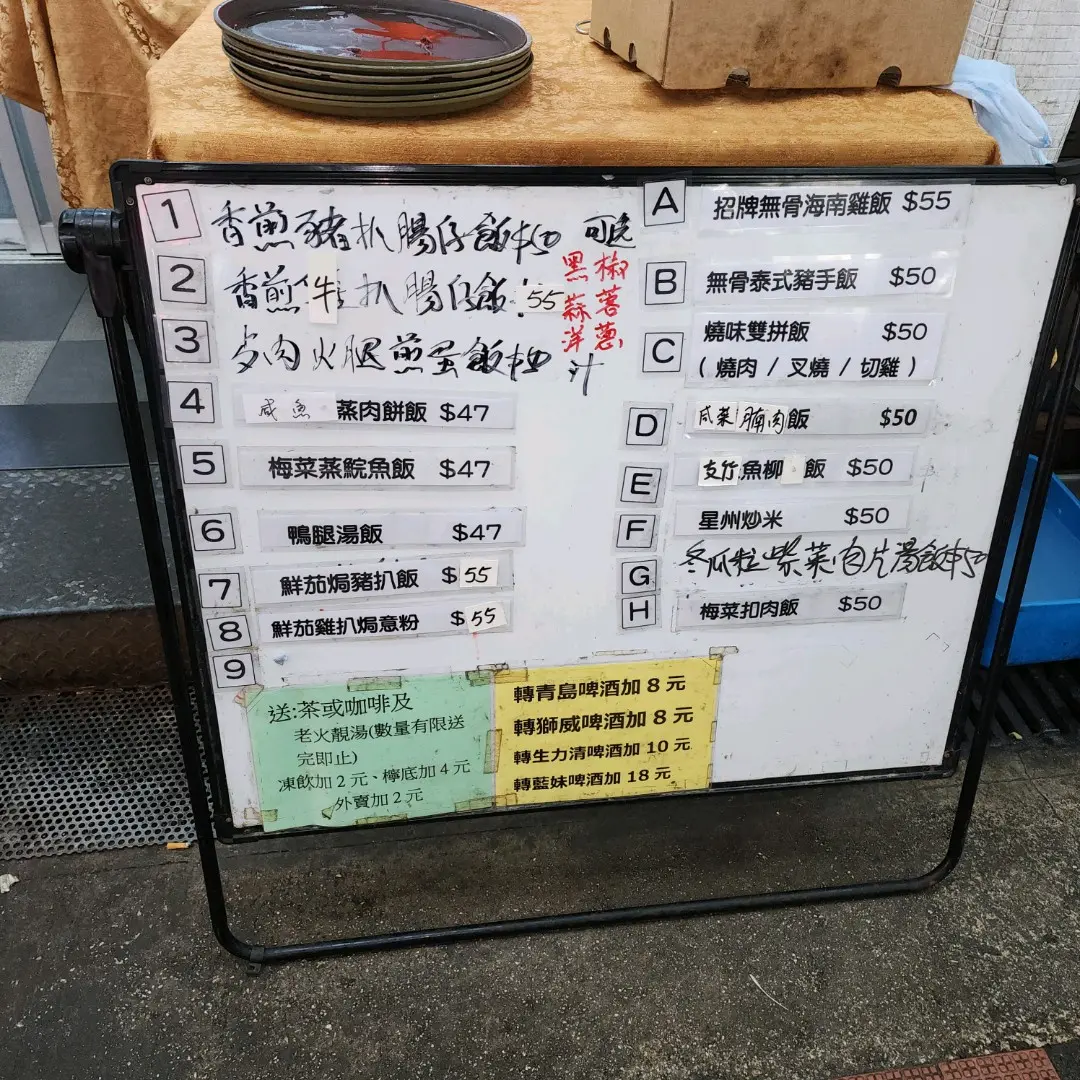 1 香煎豬扒腸仔飯 可選
2 香煎牛扒腸仔飯 55
黑椒
蒜蓉
洋蔥
汁
3 肉火腿煎蛋飯
4 咸魚蒸肉餅飯 $47
5 梅菜蒸鯇魚飯 $47
6 鴨腿湯飯 $47
7 鮮茄焗豬扒飯 $55
8 鮮茄雞扒焗意粉 $55
9
A 招牌無骨海南雞飯 $55
B 無骨泰式豬手飯 $50
C 燒味雙拼飯 $50
( 燒肉 / 叉燒 / 切雞 )
D 咸菜腩肉飯 $50
E 支竹魚柳飯 $50
F 星州炒米 $50
G 冬瓜粒柴菜肉片湯飯
H 梅菜扣肉飯 $50
送:茶或咖啡及
老火靚湯(數量有限送
完即止)
凍飲加 2 元、檸底加 4 元
外賣加 2 元
轉青島啤酒加 8 元
轉獅威啤酒加 8 元
轉生力清啤酒加 10 元
轉藍妹啤酒加 18 元